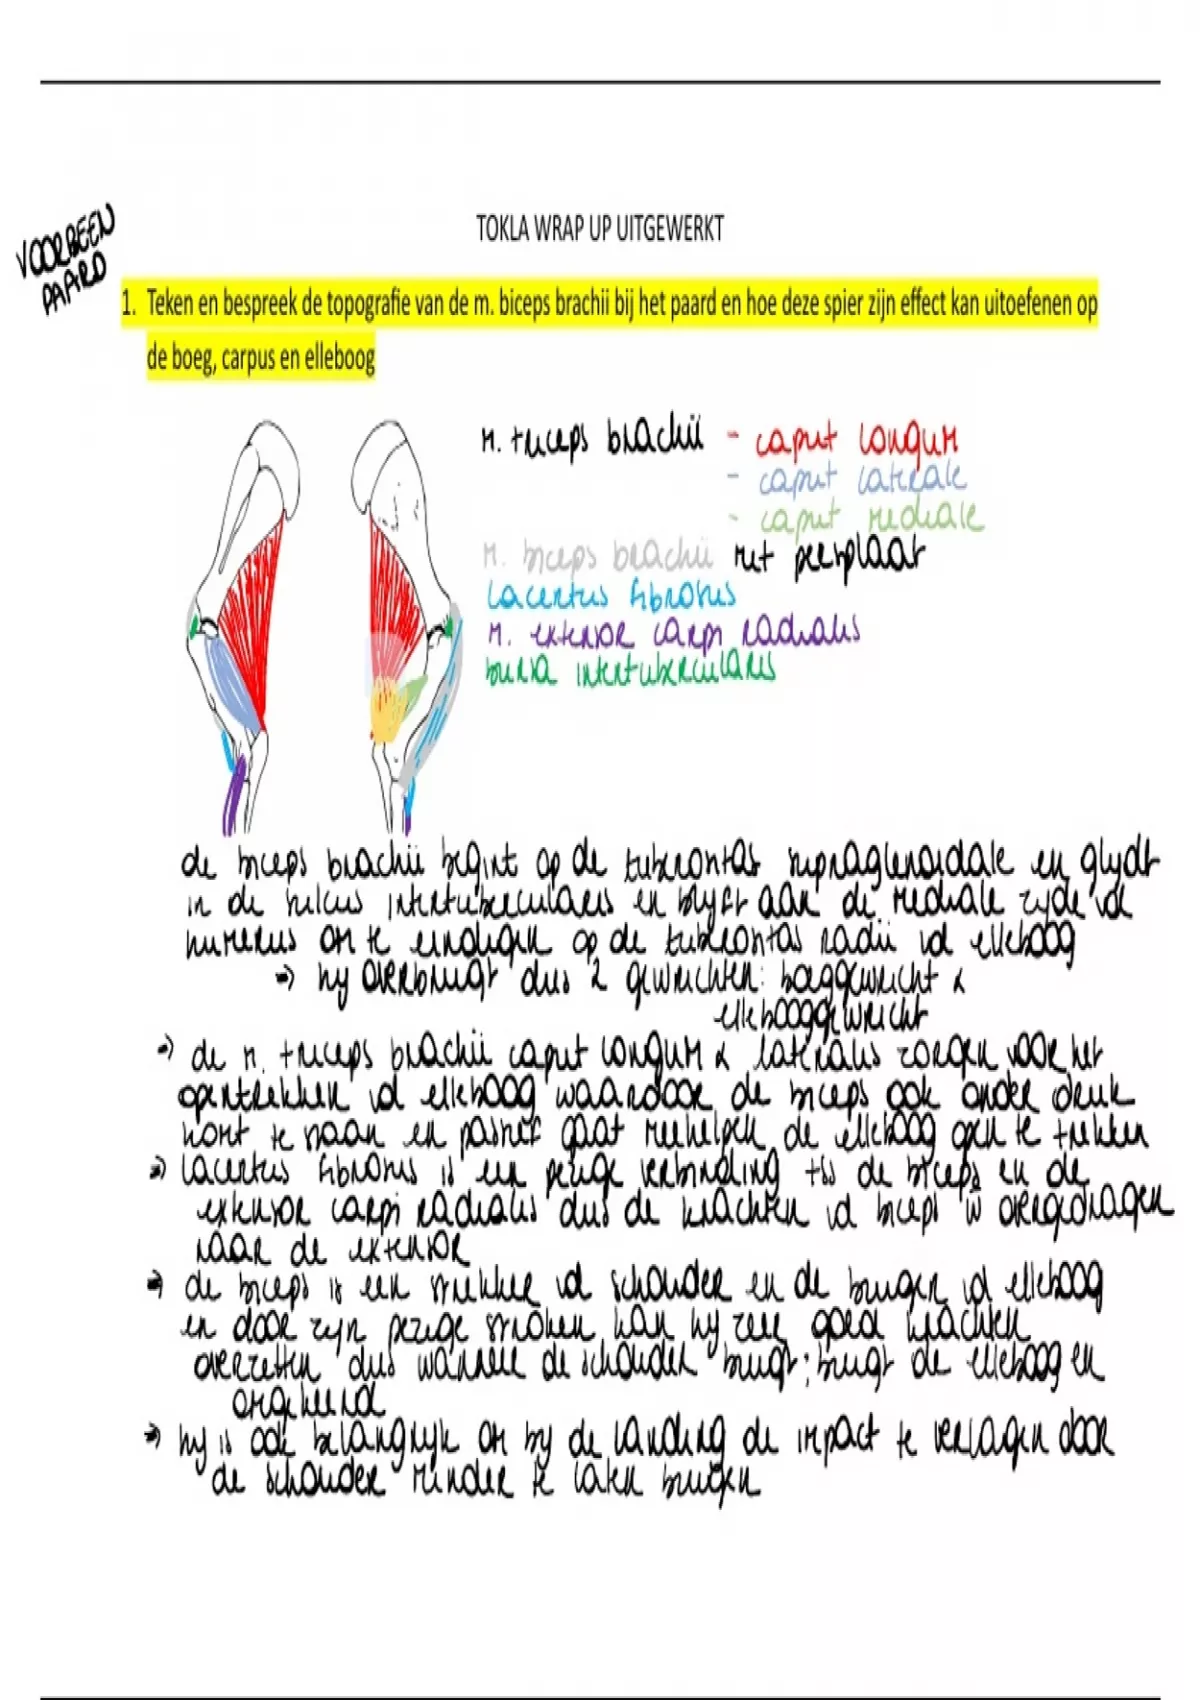 TOKLA WRAP UP UITGEWERKT
VOORBEEN
PAARD
1. Teken en bespreek de topografie van de m. biceps brachii bij het paard en hoe deze spier zijn effect kan uitoefenen op
de boeg, carpus en elleboog
M. triceps brachii - caput longum
- caput laterale
- caput mediale
M. biceps brachii met peesplaat
Lacertus fibrosus
M. extensor carpi radialis
bursa intertubercularis
de biceps brachii begint op de tuberositas supraglenoidale en glijdt
in de sulcus intertubercularis en blijft aan de mediale zijde vd
humerus om te eindigen op de tuberositas radii vd elleboog
→ hij overbrugt dus 2 gewrichten: boeggewricht &
ellebooggewricht
→ de m. triceps brachii caput longum & lateralis zorgen voor het
opentrekken vd elleboog waardoor de biceps ook onder druk
komt te staan en passief gaat meehelpen de elleboog open te trekken
→ Lacertus fibrosus is een pezige verbinding tss de biceps en de
extensor carpi radialis dus de krachten vd biceps w overgedragen
naar de extensor
→ de biceps is een strekker vd schouder en de buiger vd elleboog
en door zijn pezige stroken kan hij zeer goed krachten
overzetten dus wanneer de schouder buigt; buigt de elleboog en
omgekeerd
→ hij is ook belangrijk om bij de landing de impact te verlagen door
de schouder minder te laten buigen